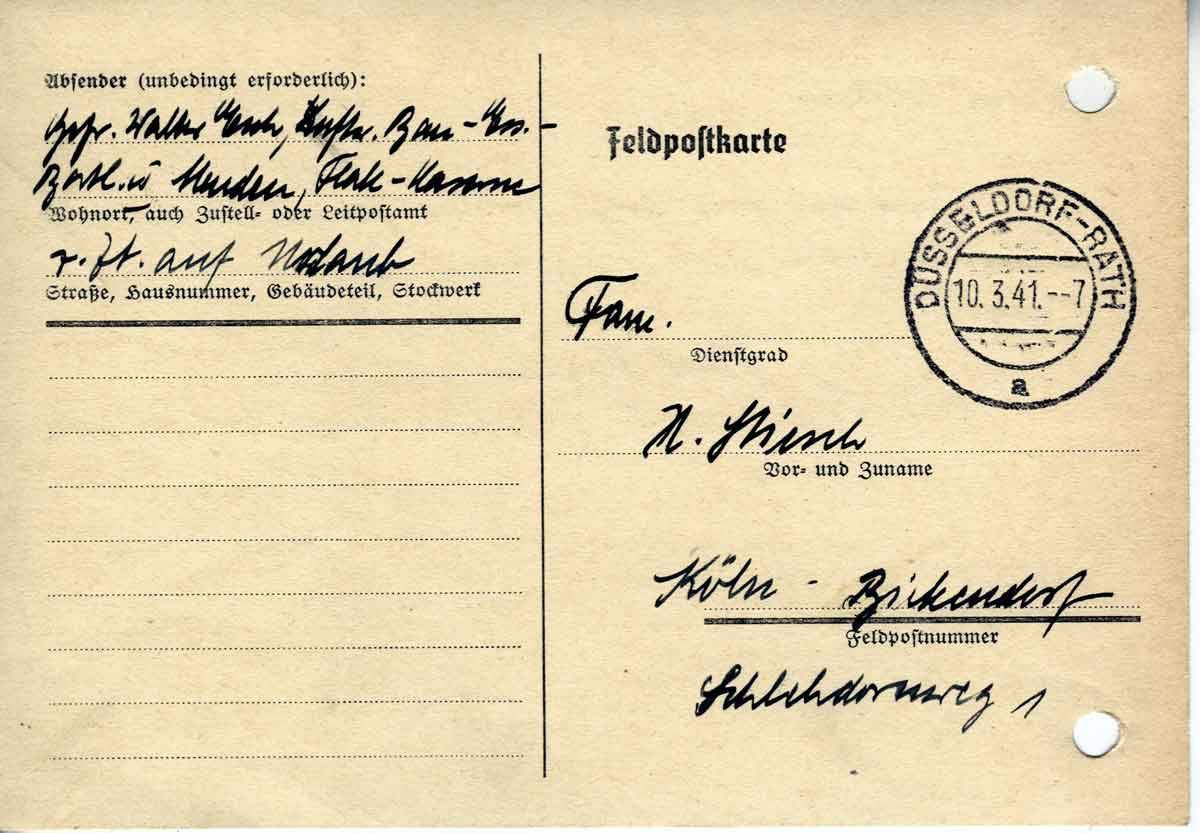 Absender (unbedingt erforderlich):
Gefr. Walter Luftw. Bau-Ers.-
Batl. Menden, Flak-Kaserne
Wohnort, auch Zustell- oder Leitpostamt
z. Zt. auf Urlaub
Straße, Hausnummer, Gebäudeteil, Stockwerk
Feldpostkarte
DÜSSELDORF-RATH
10.3.41.--7
a
Fam.
Dienstgrad
H.
Vor- und Zuname
Köln - Bickendorf
Feldpostnummer
Schlehdornweg 1